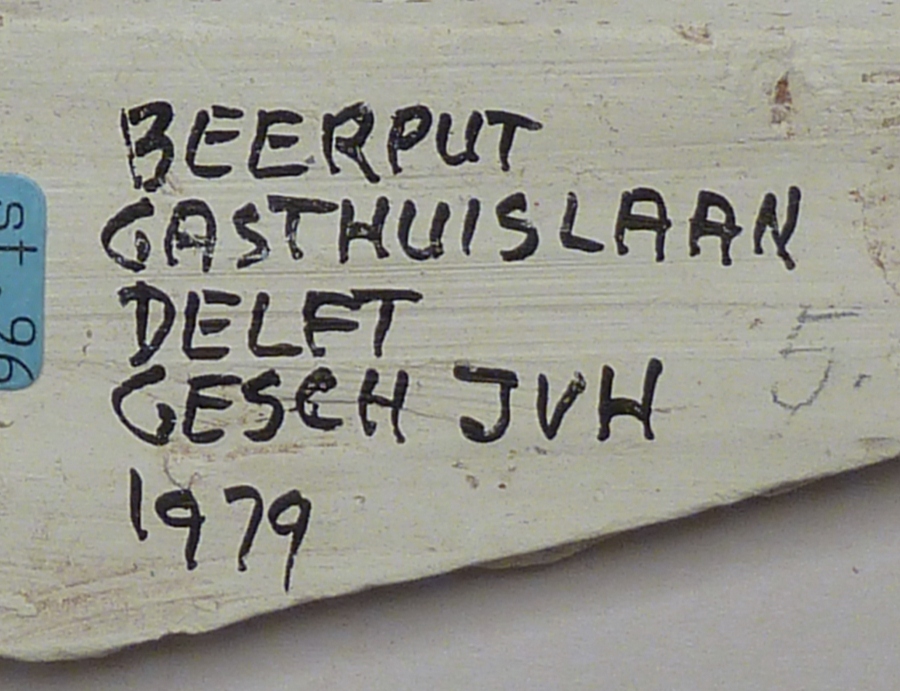 BEERPUT
GASTHUISLAAN
DELFT
GESCH JVH
1979
5.
st. 96